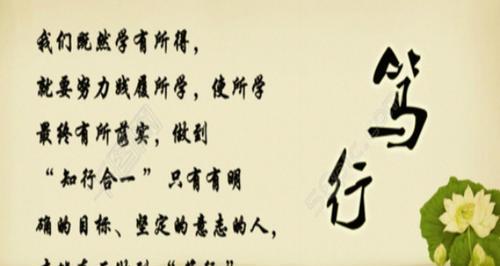 我们既然学有所得，
就要努力践履所学，使所学
最终有所落实，做到
“知行合一” 只有有明
确的目标、坚定的意志的人，
笃行